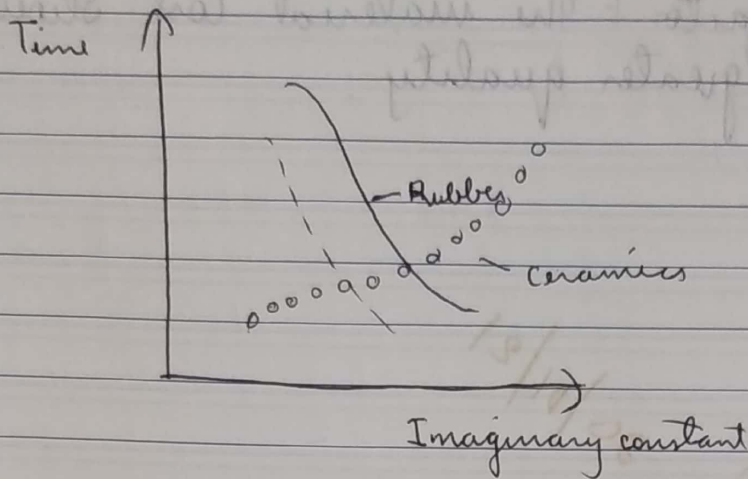 Time
Rubber
Ceramics
Imaginary constant